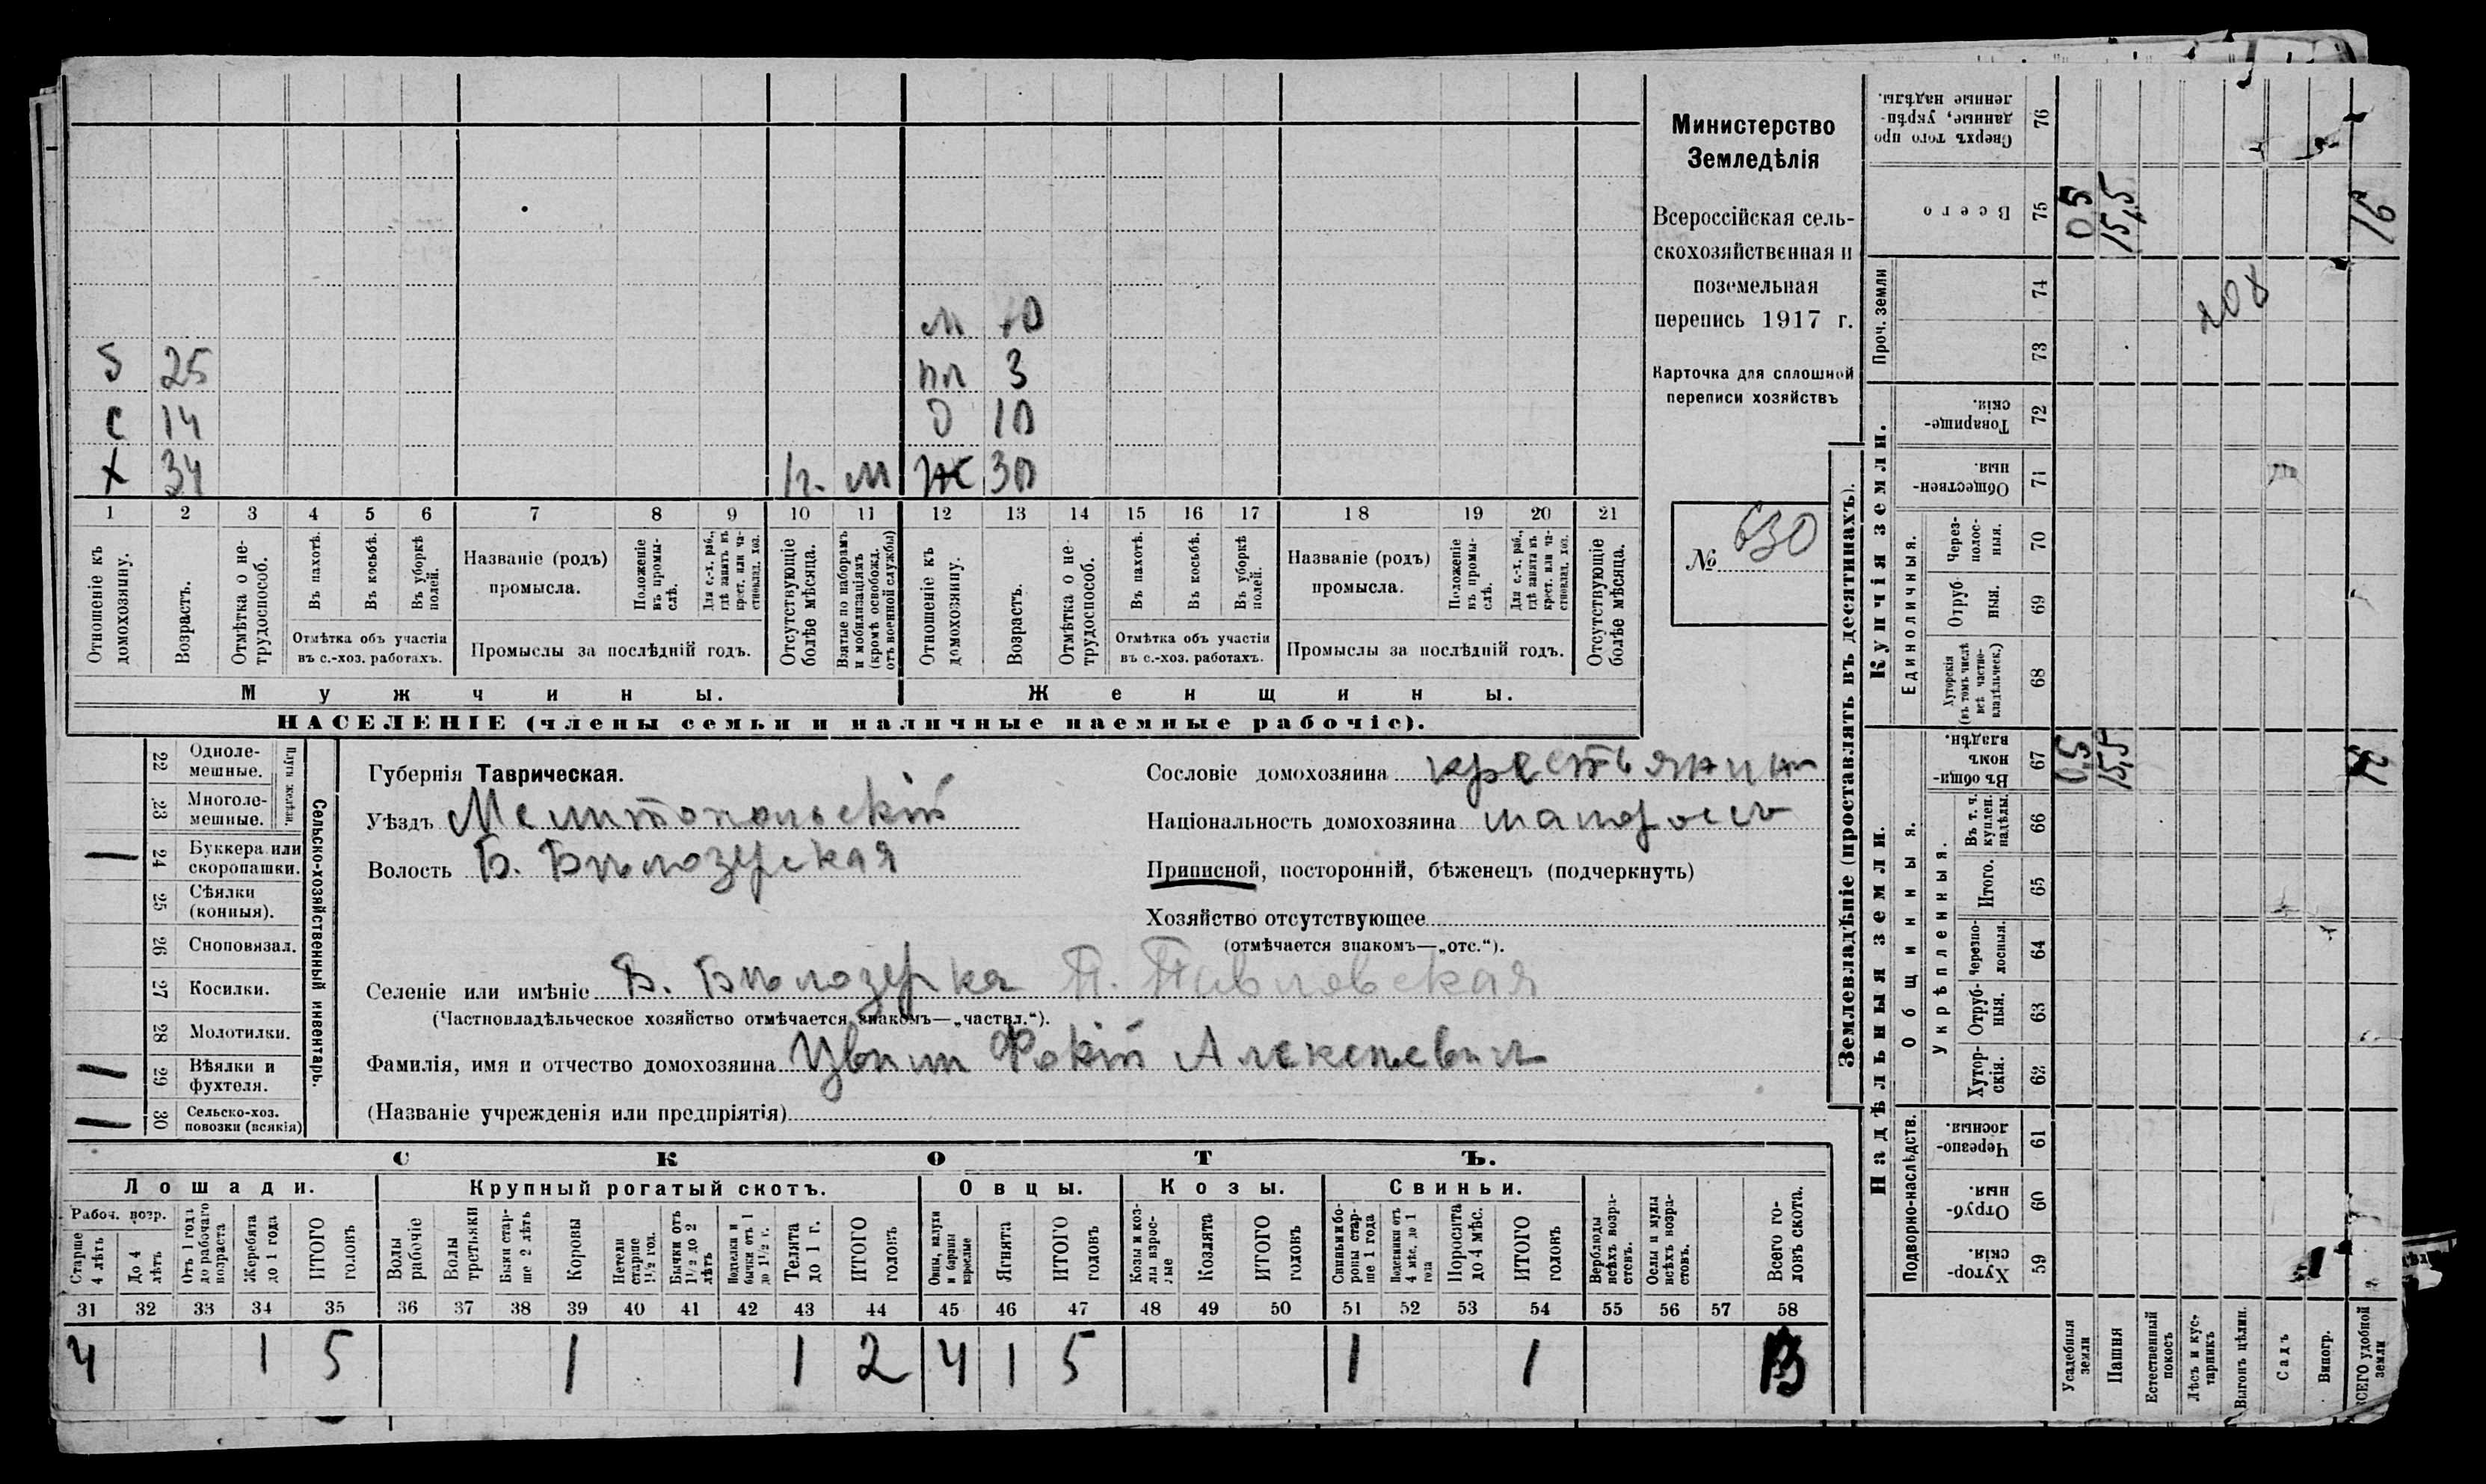 Министерство
Земледѣлія
Всероссійская сель-
скохозяйственная и
поземельная
перепись 1917 г.
Карточка для сплошной
переписи хозяйствъ
№ 630
м 70
5 25 пл 3
с 14 д 10
х 34 1г. м ж 30
1 2 3 4 5 6 7 8 9 10 11 12 13 14 15 16 17 18 19 20 21
Отношеніе къ домохозяину.
Возрастъ.
Отмѣтка о не-трудоспособ.
Въ пахотѣ.
Въ косьбѣ.
Въ уборкѣ полей.
Отмѣтка объ участіи
въ с.-хоз. работахъ.
Названіе (родъ)
промысла.
Положеніе въ промы-слѣ.
Для с.-х. раб., гдѣ занятъ въ крест. или ча-стновлад. хоз.
Промыслы за послѣдній годъ.
Отсутствующіе болѣе мѣсяца.
Взятые по наборамъ и мобилизаціямъ (кромѣ освобожд. отъ военной службы)
Отношеніе къ домохозяину.
Возрастъ.
Отмѣтка о не-трудоспособ.
Въ пахотѣ.
Въ косьбѣ.
Въ уборкѣ полей.
Отмѣтка объ участіи
въ с.-хоз. работахъ.
Названіе (родъ)
промысла.
Положеніе въ промы-слѣ.
Для с.-х. раб., гдѣ занята въ крест. или ча-стновлад. хоз.
Промыслы за послѣдній годъ.
Отсутствующіе болѣе мѣсяца.
Мужчины. Женщины.
НАСЕЛЕНІЕ (члены семьи и наличные наемные рабочіе).
Сельско-хозяйственный инвентарь.
Плуги желѣзн.
22 Одноле-мешные.
23 Многоле-мешные.
24 Буккера или скоропашки.
25 Сѣялки (конныя).
26 Сноповязал.
27 Косилки.
28 Молотилки.
29 Вѣялки и фухтеля.
30 Сельско-хоз. повозки (всякія)
Губернія Таврическая.
Уѣздъ Мелитопольскій
Волость Б. Бѣлозерская
Сословіе домохозяина крестьянин
Національность домохозяина малороссъ
Приписной, посторонній, бѣженецъ (подчеркнуть)
Хозяйство отсутствующее
(отмѣчается знакомъ—„отс.“).
Селеніе или имѣніе Б. Бѣлозерка П. Павловская
(Частновладѣльческое хозяйство отмѣчается знакомъ—„частвл.“).
Фамилія, имя и отчество домохозяина Фокій Алексѣевич
(Названіе учрежденія или предпріятія)
СКОТЪ.
Лошади. Крупный рогатый скотъ. Овцы. Козы. Свиньи.
Рабоч. возр.
Старше 4 лѣтъ
До 4 лѣтъ
Отъ 1 года до рабочаго возраста
Жеребята до 1 года
ИТОГО головъ
Волы рабочіе
Волы третьяки
Быки стар-ше 2 лѣтъ
Коровы
Нетели старше 1½ год.
Бычки отъ 1½ до 2 лѣтъ
Подтелки и бычки отъ 1 до 1½ г.
Телята до 1 г.
ИТОГО головъ
Овцы, валухи и бараны взрослые
Ягнята
ИТОГО головъ
Козы и коз-лы взрос-лые
Козлята
ИТОГО головъ
Свиньи и бо-ровы стар-ше 1 года
Подсвинки отъ 4 мѣс. до 1 года
Поросята до 4 мѣс.
ИТОГО головъ
Верблюды всѣхъ возра-стовъ.
Ослы и мулы всѣхъ возра-стовъ.
Всего го-ловъ скота.
31 32 33 34 35 36 37 38 39 40 41 42 43 44 45 46 47 48 49 50 51 52 53 54 55 56 57 58
4 1 5 1 1 2 4 1 5 1 1 13
Землевладѣніе (проставлять въ десятинахъ).
Надѣльныя земли. Купчія земли. Проч. земли
Подворно-наслѣдств.
Общинныя.
Укрѣпленныя.
Единоличныя.
59 Хутор-скія.
60 Отруб-ныя.
61 Черезпо-лосныя.
62 Хутор-скія.
63 Отруб-ныя.
64 Черезпо-лосныя.
65 Итого.
66 Въ т. ч. куплен. надѣлы.
67 Въ общин-номъ владѣн.
68 Хуторскія (въ томъ числѣ всѣ частно-владѣльческ.)
69 Отруб-ныя.
70 Через-полос-ныя.
71 Обществен-ныя.
72 Товарище-скія.
73
74
75 Всего
76 Сверхъ того про-данные, укрѣп-ленные надѣлы.
Усадебныя земли 0,5 05
Пашня 15,5 15,5
Естественный покосъ
Лѣсъ и кус-тарникъ
Выгонъ цѣлин.
Садъ
Виногр.
ВСЕГО удобной земли 16
208